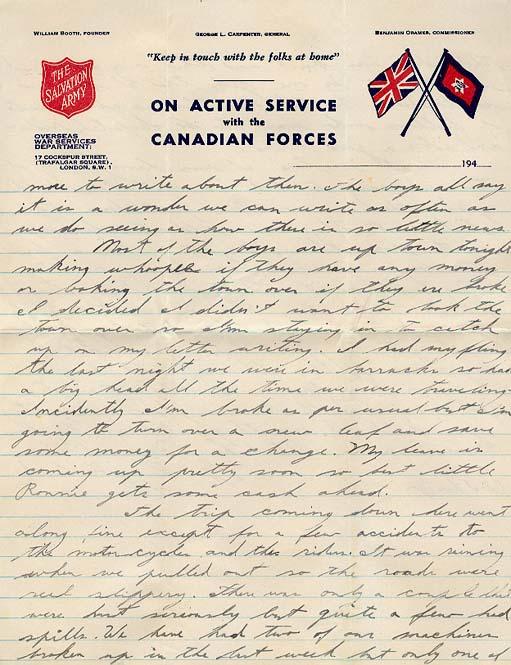 WILLIAM BOOTH, FOUNDER
GEORGE L. CARPENTER, GENERAL
BENJAMIN ORAMES, COMMISSIONER
"Keep in touch with the folks at home"
THE SALVATION ARMY
ON ACTIVE SERVICE
with the
CANADIAN FORCES
OVERSEAS
WAR SERVICES
DEPARTMENT:
17 COCKSPUR STREET,
(TRAFALGAR SQUARE),
LONDON, S.W. 1
194
more to write about then. The boys all say
it is a wonder we can write as often as
we do seeing as how there is so little news
Most of the boys are up town tonight
making whoopee if they have any money
or looking the town over if they are broke
I decided I didn't want to look the
town over so I'm staying in to catch
up on my letter writing. I had my fling
the last night we were in barracks so had
a big head all the time we were traveling
Incidently I'm broke as per usual but I'm
going to turn over a new leaf and save
some money for a change. My leave is
coming up pretty soon so but little
Ronnie gets some cash ahead.
The trip coming down here went
along fine except for a few accidents to
the motor cycles and the riders. It was raining
when we pulled out so the roads were
real slippery. There was only a couple
were hurt seriously but quite a few had
spills. We have had two of our machines
broken up in the last week but only one of